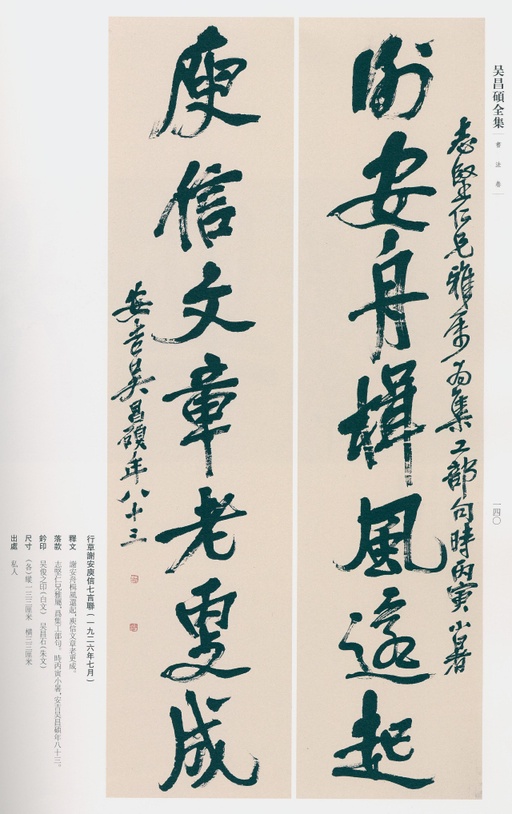 吴昌碩全集 書法卷
一四〇
志堅仁兄雅屬為集工部句時丙寅小暑
謝安舟楫風還起
庾信文章老更成
安吉吳昌碩年八十三
行草謝安庾信七言聯(一九二六年七月)
釋文 謝安舟楫風還起,庾信文章老更成。
落款 志堅仁兄雅屬,爲集工部句。時丙寅小暑,安吉吳昌碩年八十三。
鈐印 吴俊之印(白文) 吴昌石(朱文)
尺寸 (各)縱一三三厘米 橫三三厘米
出處 私人